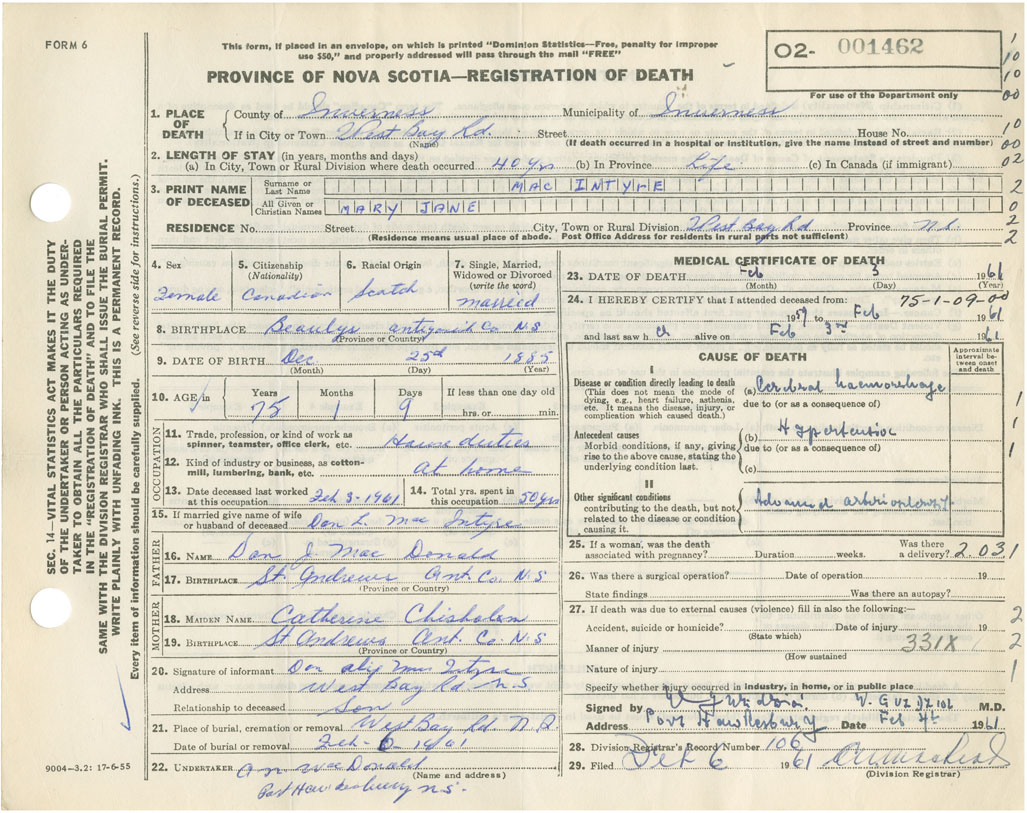 FORM 6
This form, if placed in an envelope, on which is printed "Dominion Statistics—Free, penalty for improper
use $50," and properly addressed will pass through the mail "FREE"
PROVINCE OF NOVA SCOTIA—REGISTRATION OF DEATH
O2- 001462
For use of the Department only
1
10
10
00
10
00
02
2
0
2
2
1. PLACE OF DEATH
County of Inverness Municipality of Inverness
If in City or Town West Bay Rd. Street House No.
(Name) (If death occurred in a hospital or institution, give the name instead of street and number)
2. LENGTH OF STAY (in years, months and days)
(a) In City, Town or Rural Division where death occurred 40 yrs (b) In Province Life (c) In Canada (if immigrant)
3. PRINT NAME OF DECEASED
Surname or Last Name MAC INTYRE
All Given or Christian Names MARY JANE
RESIDENCE No. Street City, Town or Rural Division West Bay Rd Province N.S.
(Residence means usual place of abode. Post Office Address for residents in rural parts not sufficient)
4. Sex
Female
5. Citizenship
(Nationality)
Canadian
6. Racial Origin
Scotch
7. Single, Married, Widowed or Divorced
(write the word)
married
8. BIRTHPLACE Beaulys Antigonish Co N S
(Province or Country)
9. DATE OF BIRTH Dec 25th 1885
(Month) (Day) (Year)
10. AGE in
Years Months Days If less than one day old
75 1 9 hrs. or min.
OCCUPATION
11. Trade, profession, or kind of work as spinner, teamster, office clerk, etc. House duties
12. Kind of industry or business, as cotton-mill, lumbering, bank, etc. at home
13. Date deceased last worked at this occupation Feb 3-1961
14. Total yrs. spent in this occupation 50 yrs
15. If married give name of wife or husband of deceased Dan L. Mac Intyre
FATHER
16. NAME Dan J. Mac Donald
17. BIRTHPLACE St. Andrews Ant. Co. N.S
(Province or Country)
MOTHER
18. MAIDEN NAME Catherine Chisholm
19. BIRTHPLACE St Andrews Ant. Co. N.S
(Province or Country)
20. Signature of informant Dan
Address West Bay Rd N.S
Relationship to deceased Son
21. Place of burial, cremation or removal West Bay Rd. N.S.
Date of burial or removal Feb-6-1961
22. UNDERTAKER MacDonald
(Name and address)
Port Hawkesbury N.S.
MEDICAL CERTIFICATE OF DEATH
23. DATE OF DEATH Feb 3 1961
(Month) (Day) (Year)
24. I HEREBY CERTIFY that I attended deceased from: 75-1-09-00
1959 to Feb 1961
and last saw h alive on Feb 3rd 1961
CAUSE OF DEATH
Approximate interval between onset and death
I
Disease or condition directly leading to death
(This does not mean the mode of dying, e.g., heart failure, asthenia, etc. It means the disease, injury, or complication which caused death.)
(a) Cerebral haemorrhage
due to (or as a consequence of)
Antecedent causes
Morbid conditions, if any, giving rise to the above cause, stating the underlying condition last.
(b) Hypertension
due to (or as a consequence of)
(c)
II
Other significant conditions
contributing to the death, but not related to the disease or condition causing it.
Advanced
1
1
1
25. If a woman, was the death associated with pregnancy? Duration weeks. Was there a delivery? 2.031
26. Was there a surgical operation? Date of operation 19
State findings Was there an autopsy?
27. If death was due to external causes (violence) fill in also the following:—
Accident, suicide or homicide? Date of injury 19
(State which)
Manner of injury 331X
(How sustained
Nature of injury
Specify whether injury occurred in industry, in home, or in public place
2
2
1
Signed by M.D.
Address Port Hawkesbury Date Feb 4th 1961
28. Division Registrar's Record Number 106
29. Filed Feb 6 1961
(Division Registrar)
SEC. 14—VITAL STATISTICS ACT MAKES IT THE DUTY
OF THE UNDERTAKER OR PERSON ACTING AS UNDER-
TAKER TO OBTAIN ALL THE PARTICULARS REQUIRED
IN THE "REGISTRATION OF DEATH" AND TO FILE THE
SAME WITH THE DIVISION REGISTRAR WHO SHALL ISSUE THE BURIAL PERMIT.
WRITE PLAINLY WITH UNFADING INK. THIS IS A PERMANENT RECORD.
Every item of information should be carefully supplied. (See reverse side for instructions.)
9004—3.2: 17-6-55